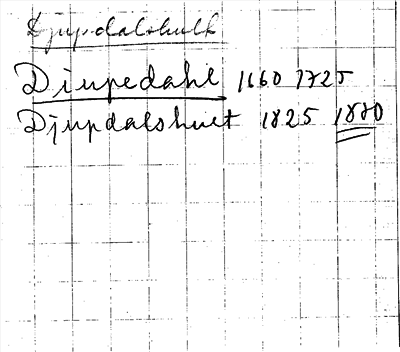 Djupdalshult
Diupedahl 1660 1725
Djupdalshult 1825 1880